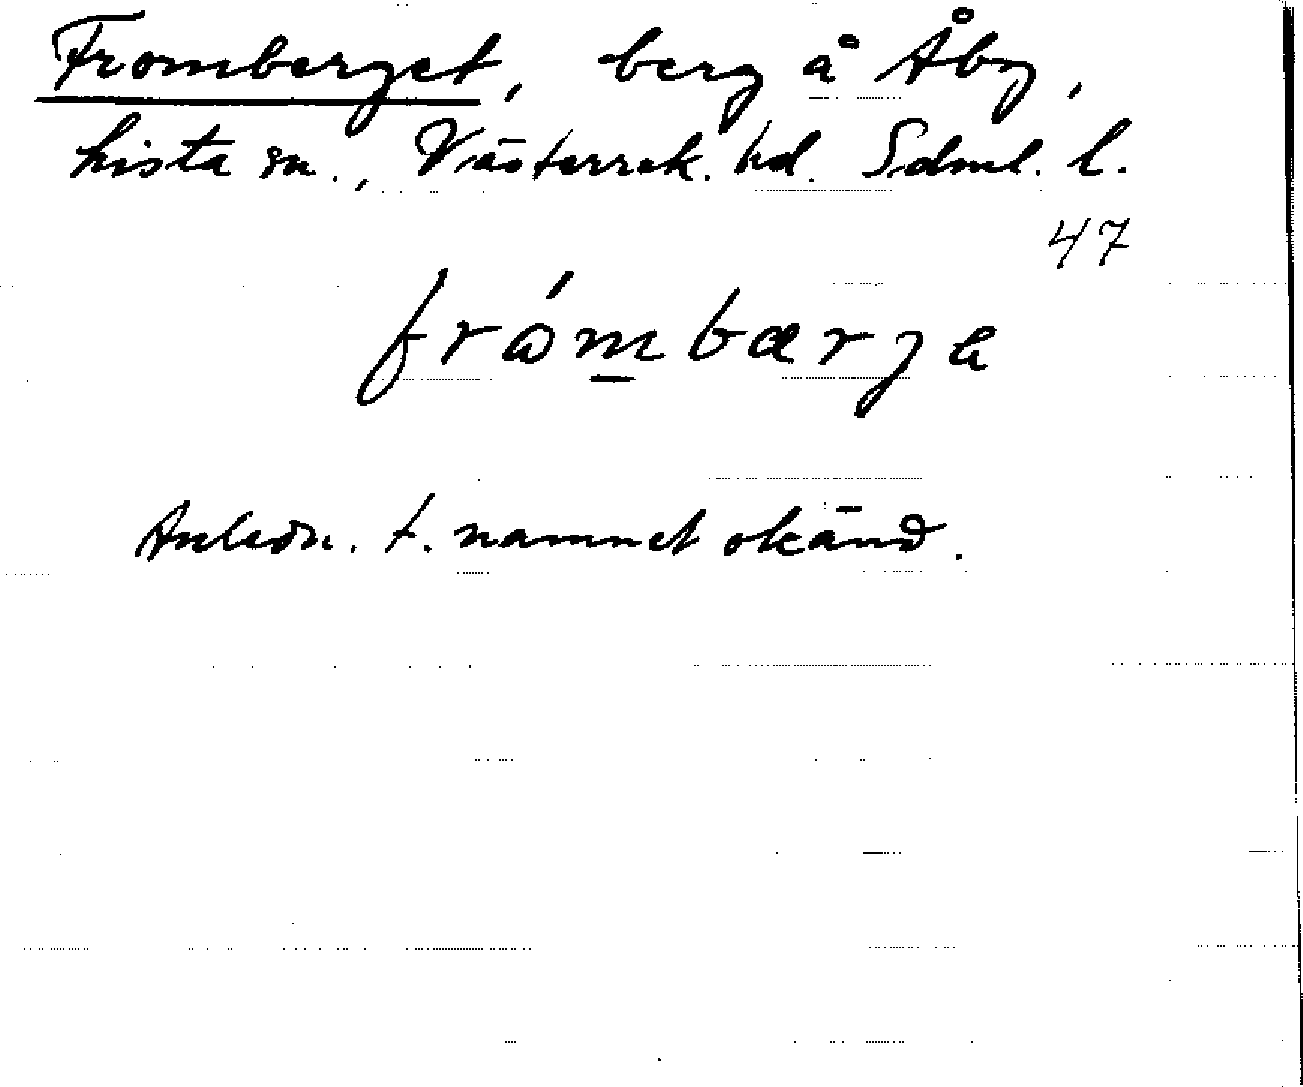 Fromberget, berg å Åby,
Lista sn., Västerrek. hd. Sdml. l.
47
frómbærja
Anledn. t. namnet okänd.